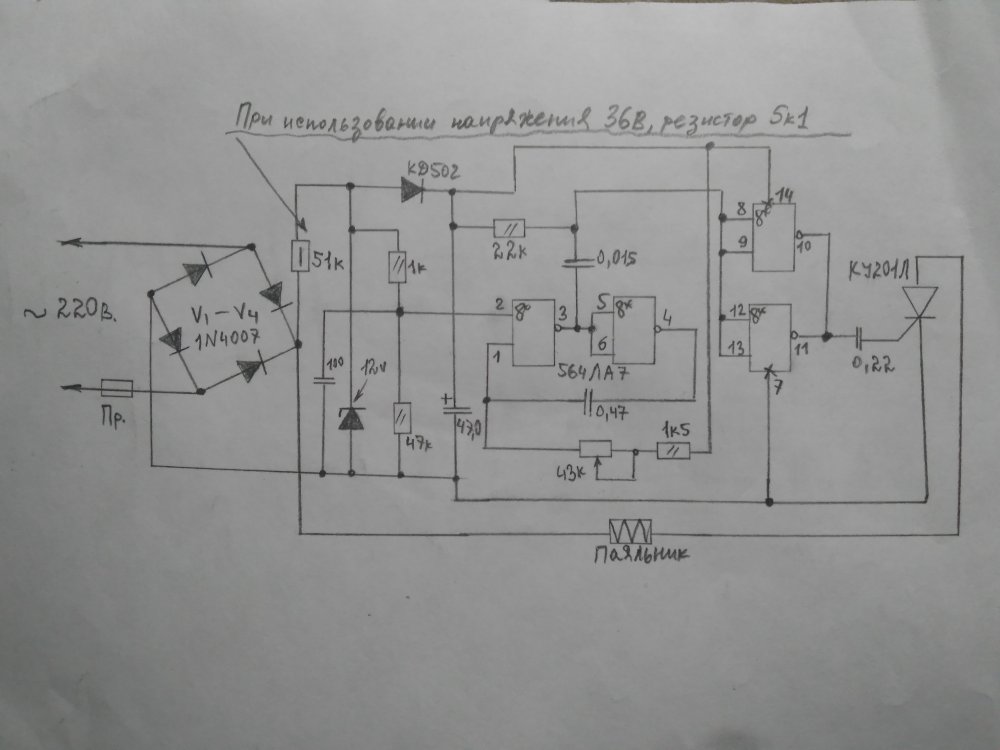 При использовании напряжения 36В, резистор 5к1
КД502
14
8
9
10
51к
22к
0,015
1к
КУ201Л
~ 220В.
V1 – V4
1N4007
2
3
5
4
1
6
12
13
11
7
564ЛА7
0,22
100
12v
Пр.
+
47,0
0,47
47к
43к
1к5
Паяльник